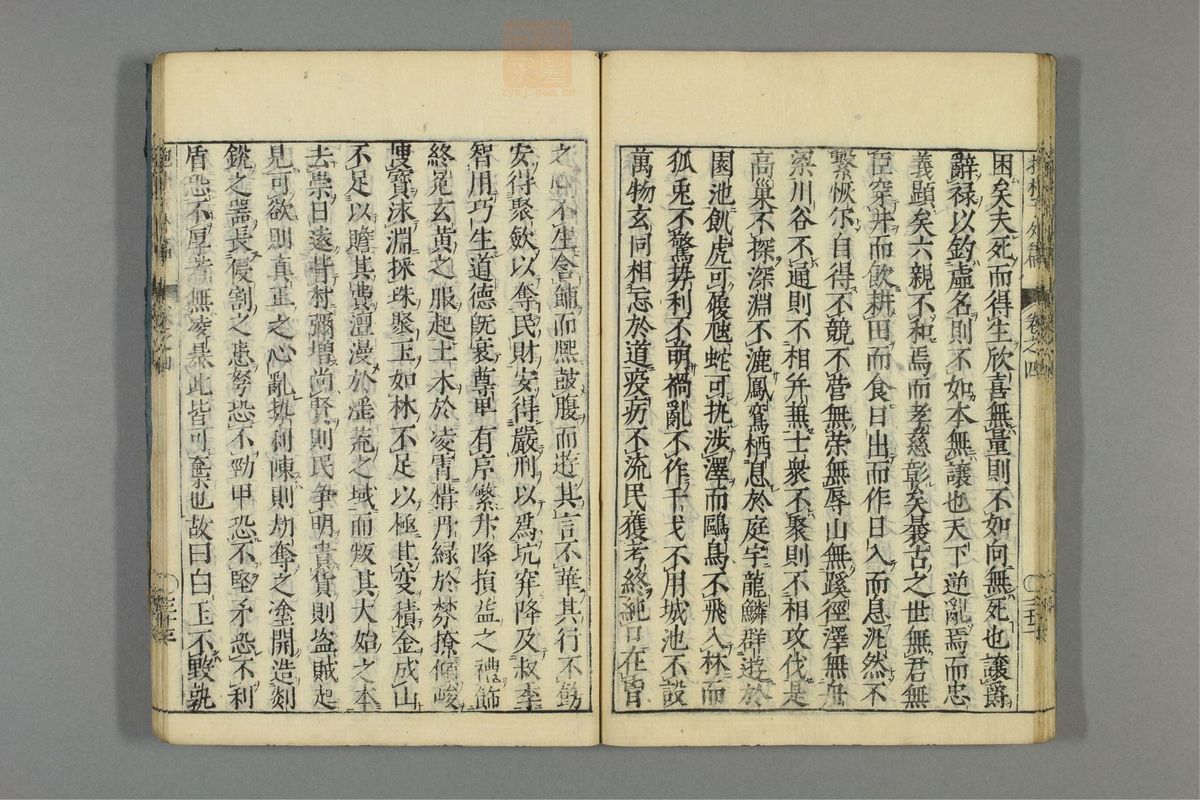 困矣夫死而得生欣喜無量則不如向無死也讓爵
辭祿以釣虛名則不如本無讓也天下逆亂焉而忠
義顯矣六親不和焉而孝慈彰矣曩古之世無君無
臣穿井而飲耕田而食日出而作日入而息汎然不
繫恢尔自得不競不營無荣無辱山無蹊徑澤無舟
梁川谷不通則不相并兼士衆不聚則不相攻伐是
高巢不探深淵不漉鳳鸞栖息於庭宇龍鱗群遊於
園池飢虎可履虺蛇可执涉澤而鷗鳥不飛入林而
狐兎不驚勢利不萌禍亂不作干戈不用城池不設
萬物玄同相忘於道疫疠不流民獲考終純白在胷
卷之四
之心不生含餔而熙鼓腹而遊其言不華其行不飭
安得聚歛以奪民財安得嚴刑以爲坑穽降及叔季
智用巧生道德旣衰尊卑有序繁升降損益之禮飾
終冕玄黃之服起土木於凌霄構丹緑於棼撩傾峻
搜寶泳淵採珠聚玉如林不足以極其变積金成山
不足以贍其費澶漫於滛荒之域而叛其大始之本
去宗日遠背朴彌增尚賢則民争明貴貨則盗賊起
見可欲則真正之心亂势利陳則劫奪之塗開造剡
銳之噐長侵割之患弩恐不勁甲恐不堅矛恐不利
盾恐不厚若無凌暴此皆可棄也故曰白玉不毀孰
zysj.com.cn